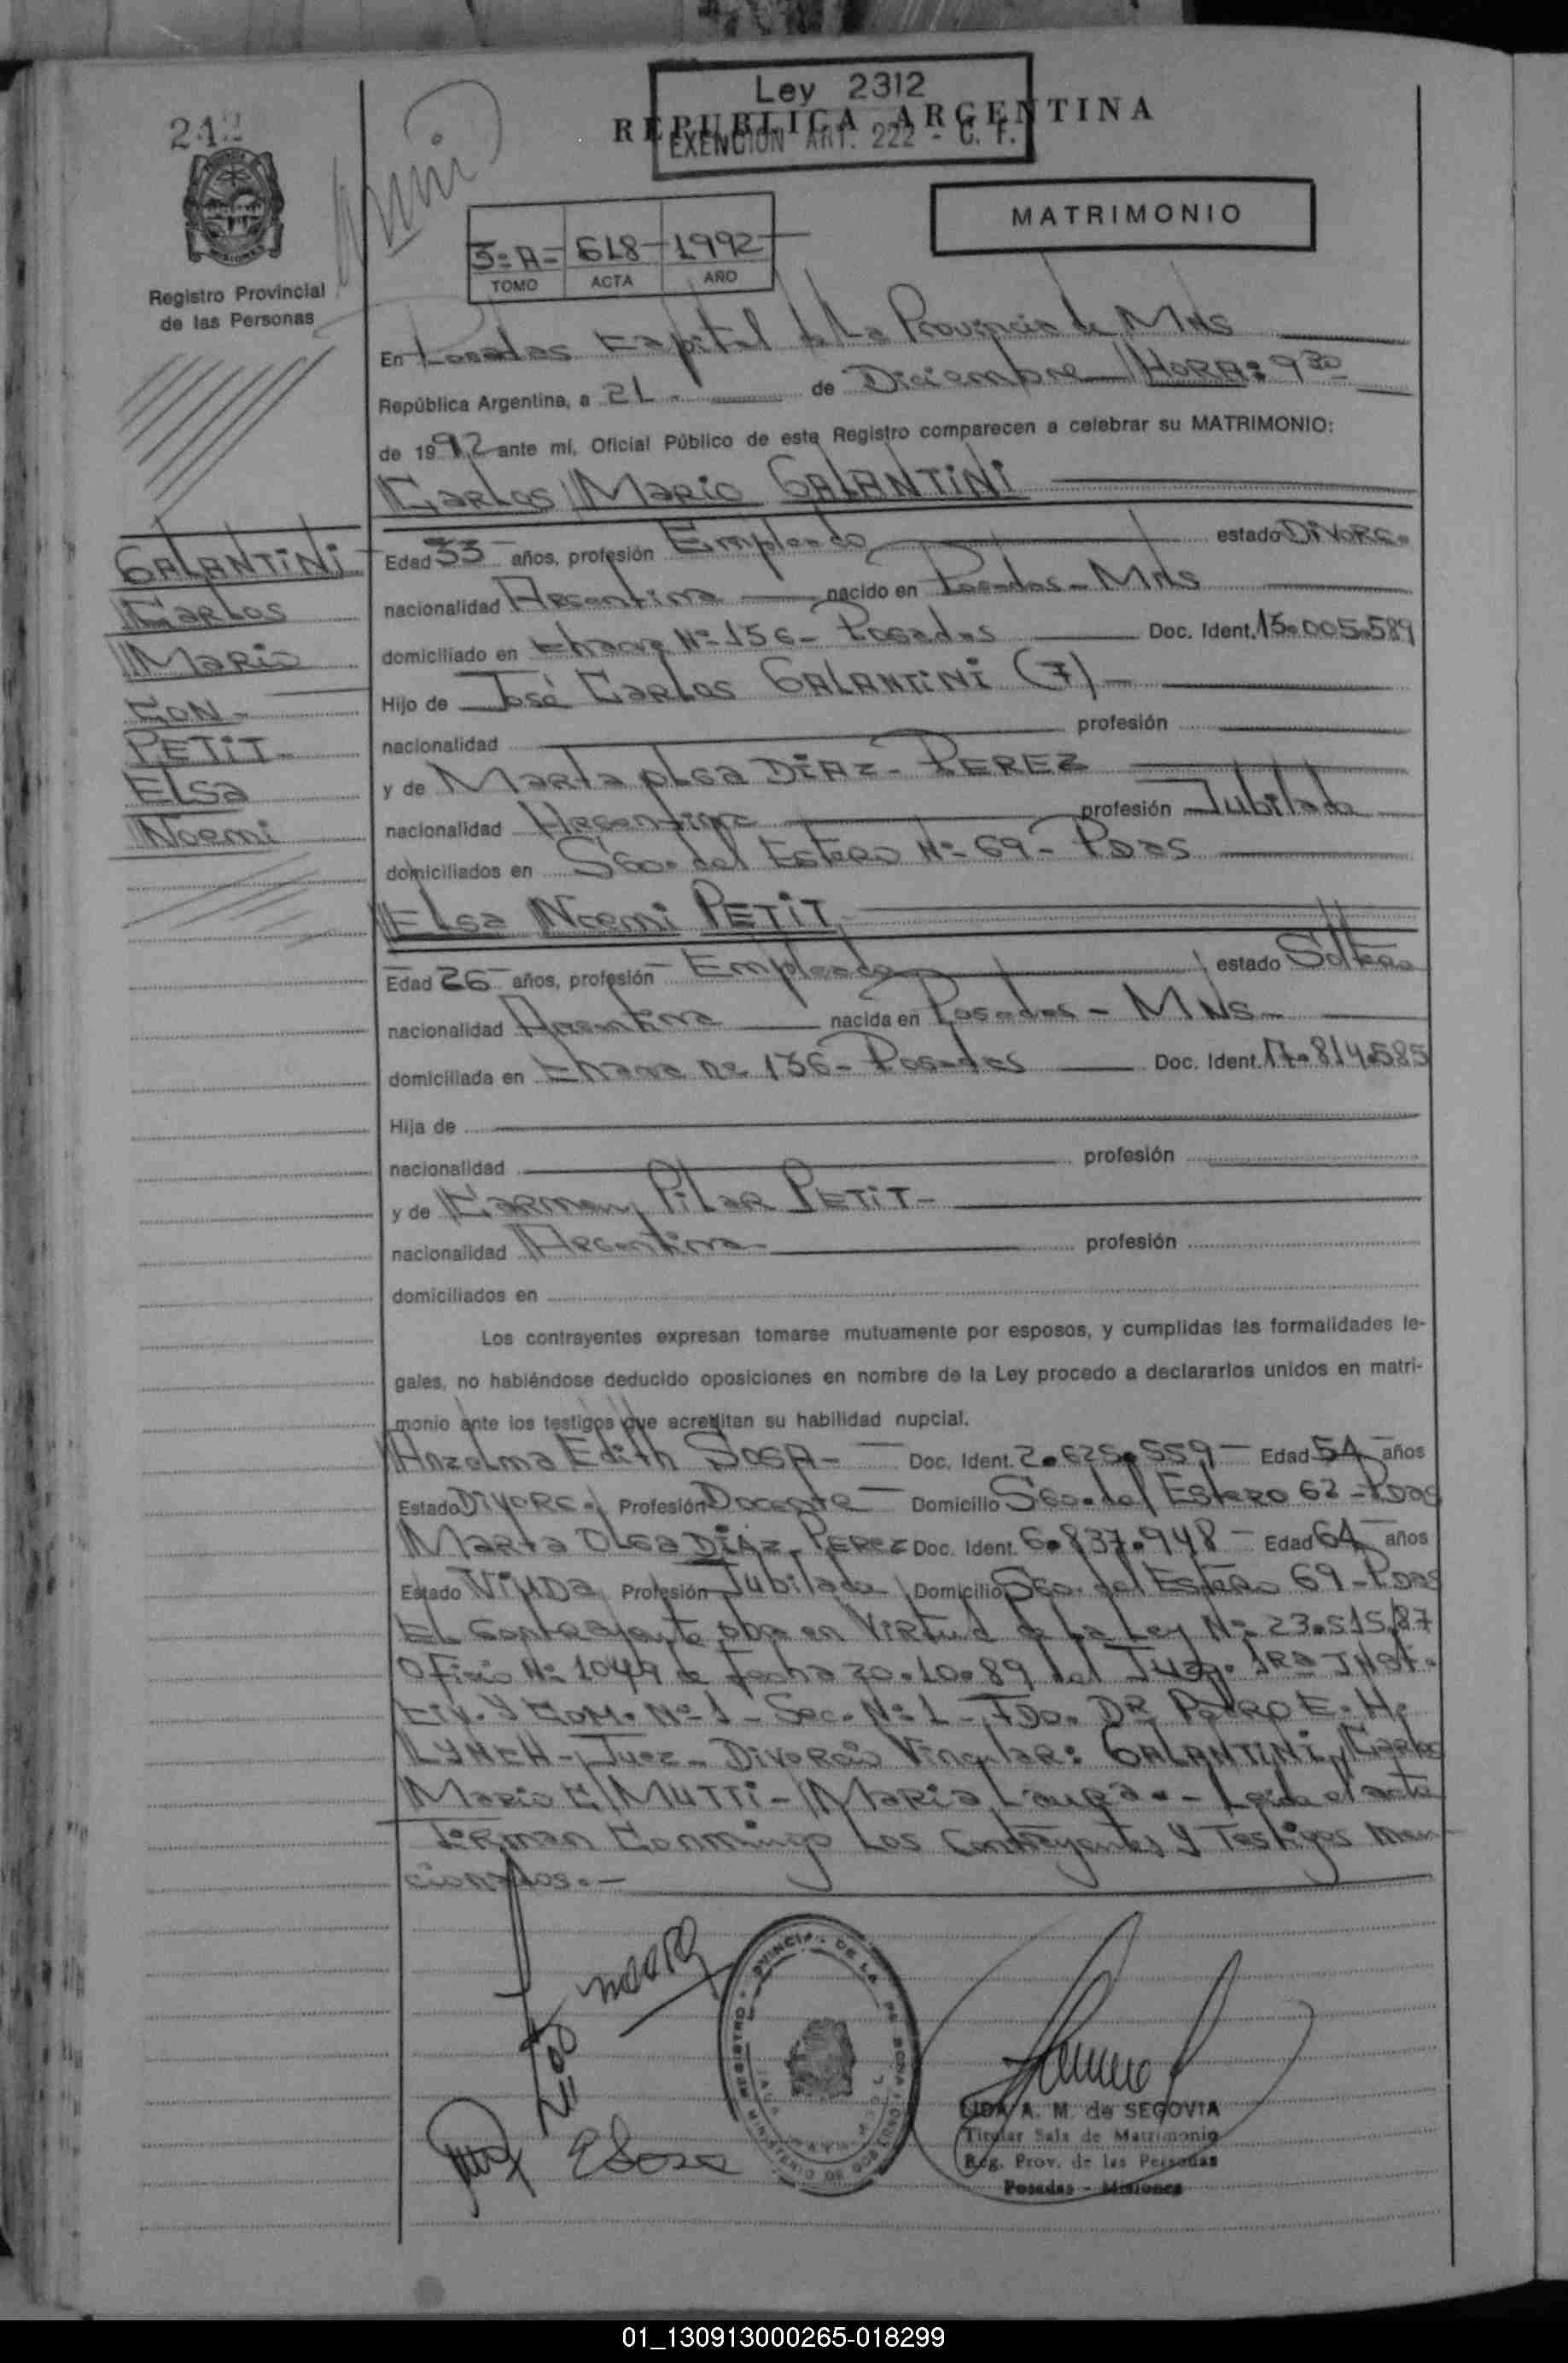 212
Ley 2312
REPUBLICA ARGENTINA
EXENCION ART. 222 - C. F.
MATRIMONIO
3º A- 618- 1992
TOMO ACTA AÑO
Registro Provincial
de las Personas
En Posadas Capital de La Provincia de MNS
República Argentina, a 21 de Diciembre HORA: 9 30
de 1992 ante mí, Oficial Público de este Registro comparecen a celebrar su MATRIMONIO:
Carlos Mario GALANTINI
GALANTINI
Carlos
Mario
CON-
PETIT-
Elsa
Noemi
Edad 33 años, profesión Empleado estado DIVORC.
nacionalidad Argentina nacido en Posadas - MNS
domiciliado en Nº 136- Posadas Doc. Ident. 13.005.589
Hijo de José Carlos GALANTINI (F)
nacionalidad profesión
y de Marta OLGA DIAZ- PEREZ
nacionalidad Argentina profesión Jubilada
domiciliados en Sgo. del Estero Nº 69- Pdas
Elsa Noemi PETIT
Edad 26 años, profesión Empleada estado Soltera
nacionalidad Argentina nacida en Posadas - MNS-
domiciliada en Nº 136- Posadas Doc. Ident. 17.814.585
Hija de
nacionalidad profesión
y de Carmen Pilar PETIT-
nacionalidad Argentina profesión
domiciliados en
Los contrayentes expresan tomarse mutuamente por esposos, y cumplidas las formalidades le-
gales, no habiéndose deducido oposiciones en nombre de la Ley procedo a declararlos unidos en matri-
monio ante los testigos que acreditan su habilidad nupcial.
Anzelma Edith SOSA- Doc. Ident. 2.625.559- Edad 54 años
Estado Divorc. Profesión Docente Domicilio Sgo. del Estero 62-Pdas
Marta OLGA DIAZ- PEREZ Doc. Ident. 6.837.948- Edad 64 años
Estado VIUDA Profesión Jubilada Domicilio Sgo. del Estero 69-Pdas
El Contrayente obra en Virtud de La Ley Nº 23.515/87
Oficio Nº 1049 de fecha 20.10.89 del Juzg. 1RA INST.
CIV. Y COM. Nº 1 - Sec. Nº 1 - FDO. DR PEDRO E. H.
LYNCH- Juez- Divorcio Vincular: GALANTINI, Carlos
Mario C/ MUTTI- Maria Laura.- Leída el acta
firman Conmigo Los Contrayentes y Testigos Men
cionados.-
E Sosa
LIDA A. M. de SEGOVIA
Titular Sala de Matrimonio
Reg. Prov. de las Personas
Posadas - Misiones
01_130913000265-018299